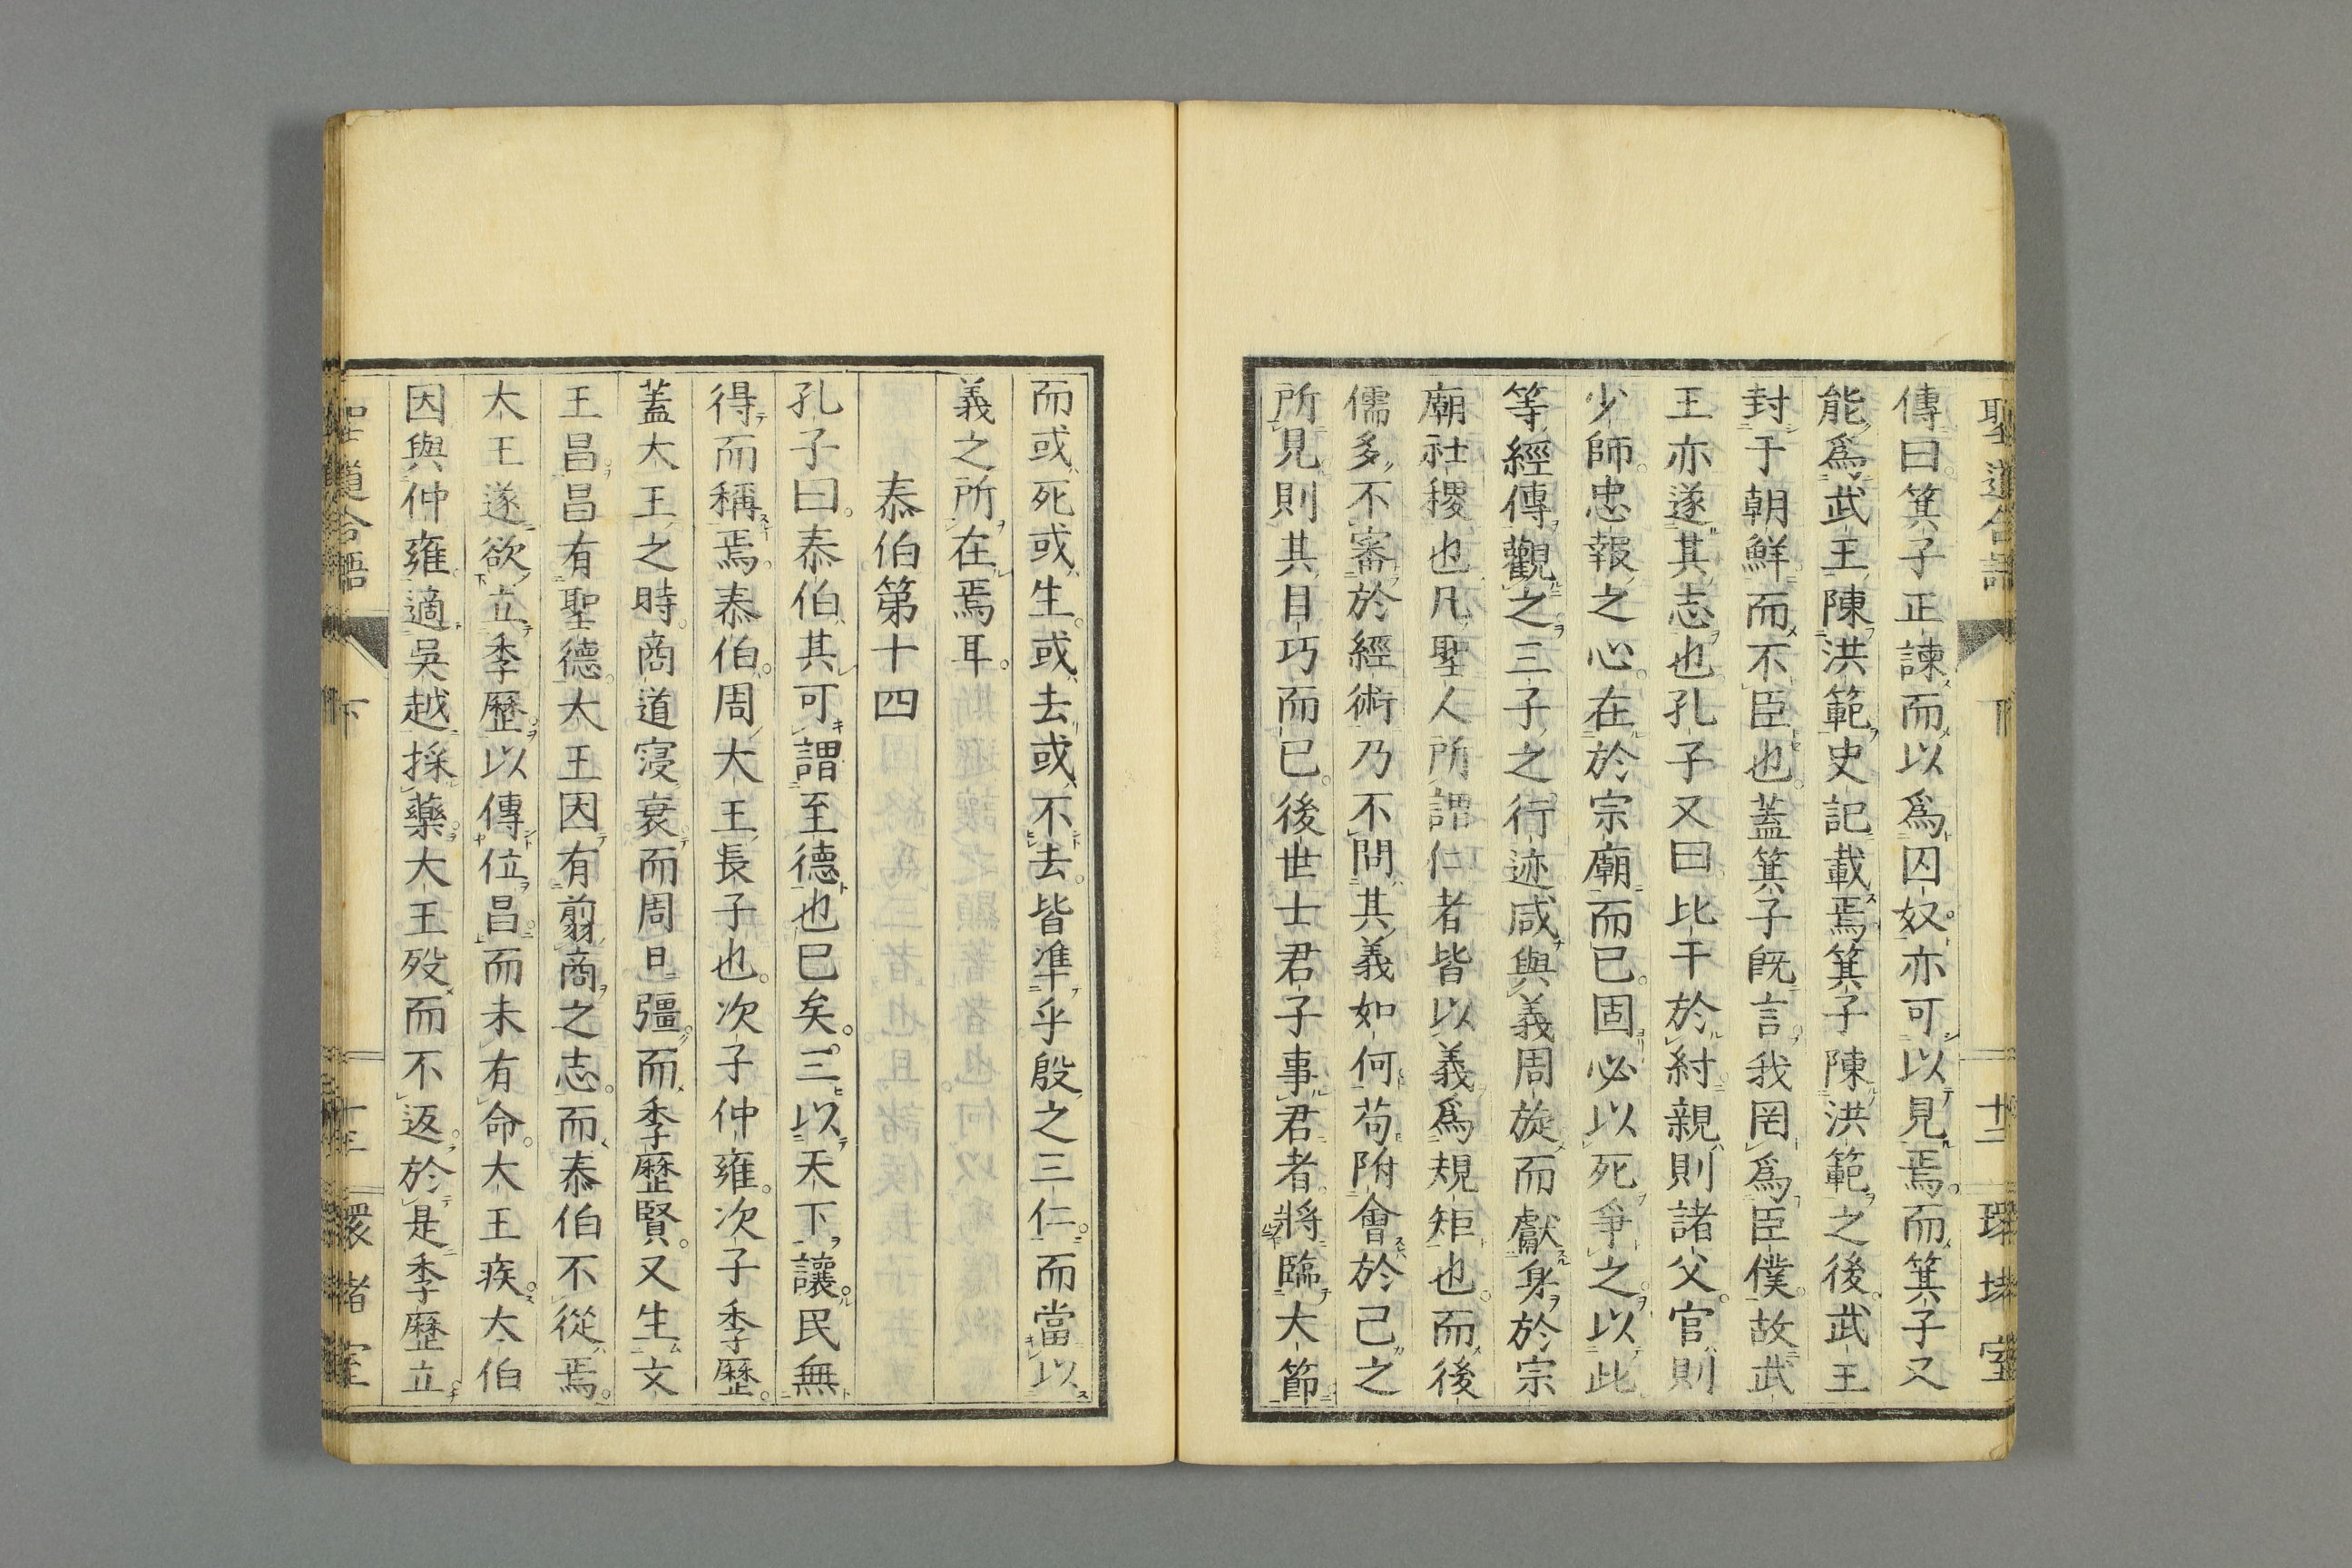 聖道合語 下 十二 環堵室
傳曰。箕子正諫而以爲囚奴。亦可以見焉。而箕子又
能爲武王陳洪範。史記載焉。箕子陳洪範之後。武王
封于朝鮮而不臣也。蓋箕子旣言我罔爲臣僕。故武
王亦遂其志也。孔子又曰比干於紂親則諸父。官則
少師。忠報之心。在於宗廟而已。固必以死爭之。以此
等經傳觀之。三子之行迹咸與義周旋而獻身於宗
廟社稷也。凡聖人所謂仁者皆以義爲規矩也。而後
儒多不審於經術乃不問其義如何苟附會於己之
所見則其目巧而已。後世士君子事君者。將臨大節
而或死或生。或去或不去。皆準乎殷之三仁。而當以
義之所在焉耳。
泰伯第十四
孔子曰。泰伯其可謂至德也已矣。三以天下讓。民無
得而稱焉。泰伯。周大王長子也。次子仲雍。次子季歷。
蓋大王之時。商道寖衰而周日彊。而季歷賢。又生文
王昌。昌有聖德。大王因有翦商之志。而泰伯不從焉。
大王遂欲立季歷以傳位昌。而未有命。大王疾。大伯
因與仲雍適吳越採藥。大王歿而不返。於是季歷立
聖道合語 下 十二 環堵室